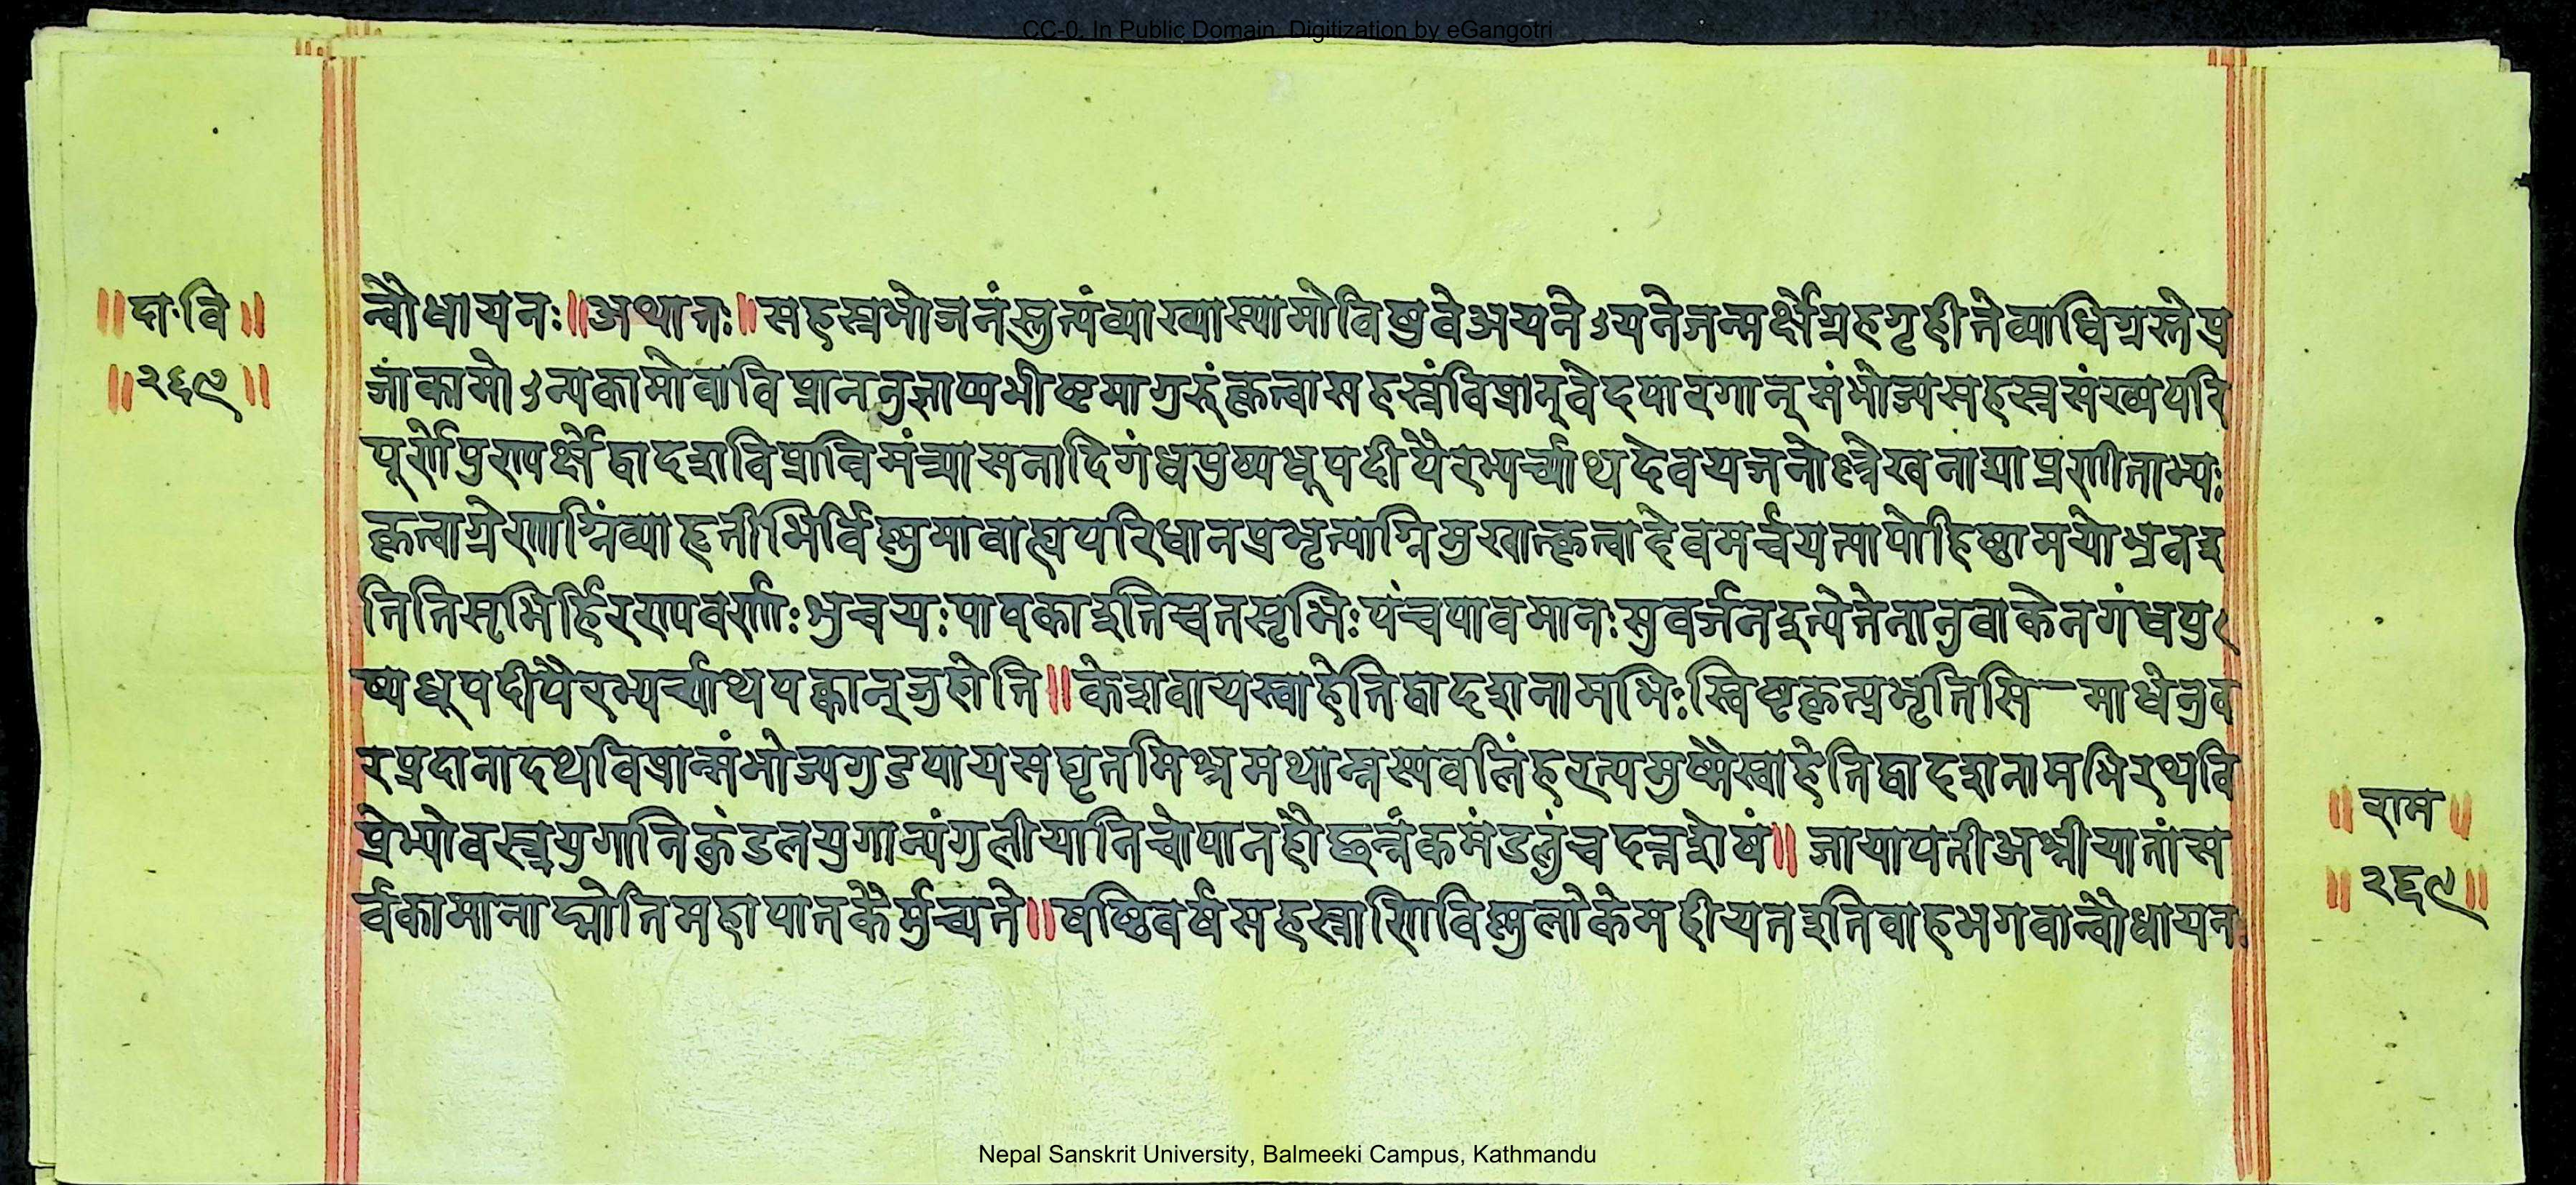 CC-0. In Public Domain. Digitization by eGangotri
॥दा·वि॥
॥२६९॥
न्बौधायनः॥अथातः॥सहस्रभोजनंस्तुत्यंव्याख्यास्यामोविषुवेअयनेऽयनेजन्मर्क्षेग्रहगृहीतेव्याधिग्रस्तेप्र
जांकामोऽन्यकामोवाविप्राननुज्ञाप्यभीष्टमागुरुंकृत्वासहस्रंविप्रान्वेदपारगान्संभोज्यसहस्रसंख्यपरि
पूर्णेपुण्यर्क्षेद्वादशविप्रान्निमंत्र्यासनादिगंधपुष्पधूपदीपैरभ्यर्च्याथदेवयजनोल्लेखनाद्याप्रणीताभ्यः
कृत्वाग्रेणाग्निंव्याहृतीभिर्विष्णुमावाह्यपरिधानप्रभृत्याग्निमुखात्कृत्वादेवमर्चयत्यापोहिष्ठामयोभुवइ
तितिसृभिर्हिरण्यवर्णाः शुचयःपावकाइतिचतसृभिःपंचपावमानःसुवर्जनइत्येतेनानुवाकेनगंधपु
ष्पधूपदीपैरभ्यर्च्याथपक्वान्जुहोति॥केशवायस्वाहेतिद्वादशनामभिःस्विष्टकृत्प्रभृतिसि—माधेनुव
रप्रदानादथविप्रान्संभोज्यगुडपायसघृतमिश्रमथान्नस्यबलिंहरत्यमुष्मैस्वाहेतिद्वादशनामभिरथवि
प्रेभ्योवस्त्रयुगानिकुंडलयुगान्यंगुलीयानिचोपानहौछत्रंकमंडलुंचदत्त्वाशेषं॥जायापतीअश्नीयातांस
र्वकामानाप्नोतिमहापातकैर्मुच्यते॥षष्ठिवर्षसहस्राणिविष्णुलोकेमहीयतइतिवाहभगवान्बौधायनः
॥राम॥
॥२६९॥
Nepal Sanskrit University, Balmeeki Campus, Kathmandu